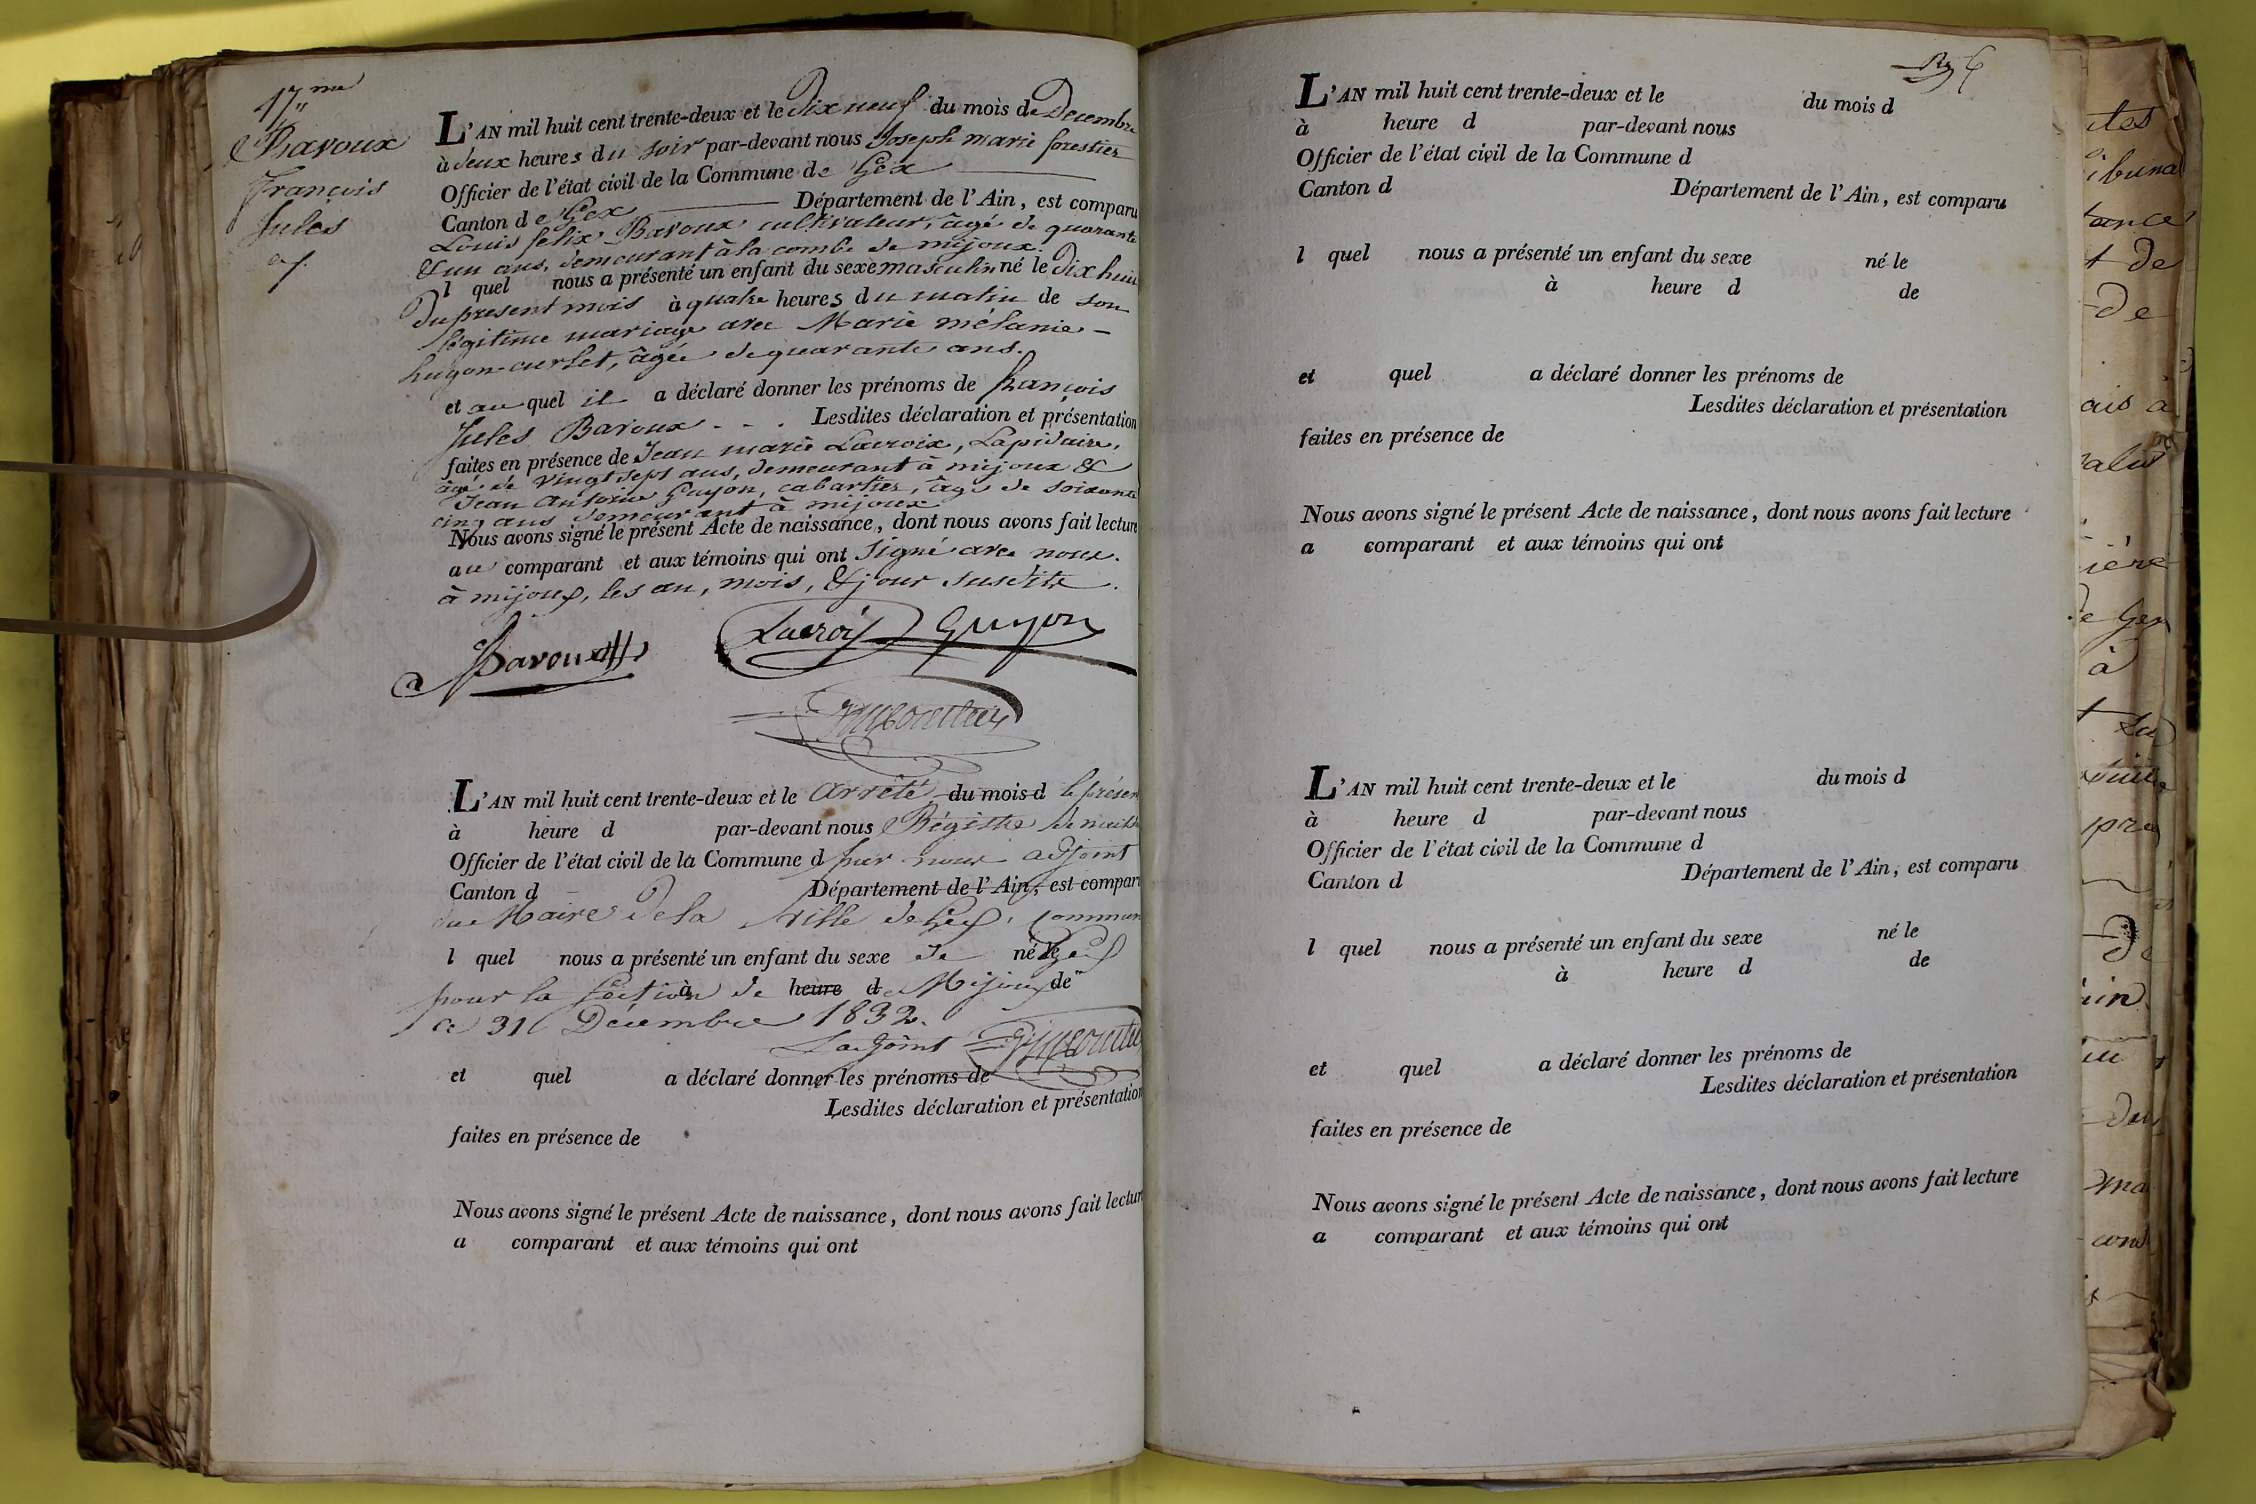 17me
Bavoux
François
Jules
L'AN mil huit cent trente-deux et le Dix neuf du mois de Decembre
à deux heures du soir par-devant nous Joseph marie forestier
Officier de l'état civil de la Commune de Gex
Canton de Gex Département de l'Ain, est comparu
Louis felix Bavoux cultivateur, âgé de quarante
& un ans, demeurant à la combe de mijoux.
l quel nous a présenté un enfant du sexe masculin né le Dix huit
Du present mois à quatre heures du matin de son
légitime mariage avec Marie mélanie
hugon-curlet, âgée de quarante ans.
et au quel il a déclaré donner les prénoms de françois
Jules Bavoux - - . Lesdites déclaration et présentation
faites en présence de Jean marie Lacroix, Lapidaire,
âgé de vingt sept ans, demeurant à mijoux &
Jean Antoine Guyon, cabartier, âgé de soixante
cinq ans demeurant à mijoux
Nous avons signé le présent Acte de naissance, dont nous avons fait lecture
au comparant et aux témoins qui ont signé avec nous.
à mijoux, les an, mois, & jour susdits.
Lacroix Guyon
Bavoux
L'AN mil huit cent trente-deux et le arrêté du mois d le présen
à heure d par-devant nous Régistre de naiss
Officier de l'état civil de la Commune d par nous adjoint
Canton d Département de l'Ain, est compar
du Maire de la Ville de Gex, commun
l quel nous a présenté un enfant du sexe de né le Gex
pour la Section à de heure d Mijoux de
ce 31 Décembre 1832.
L'adjoint
et quel a déclaré donner les prénoms de
Lesdites déclaration et présentation
faites en présence de
Nous avons signé le présent Acte de naissance, dont nous avons fait lectur
a comparant et aux témoins qui ont
L'AN mil huit cent trente-deux et le du mois d
à heure d par-devant nous
Officier de l'état civil de la Commune d
Canton d Département de l'Ain, est comparu
l quel nous a présenté un enfant du sexe né le
à heure d de
et quel a déclaré donner les prénoms de
Lesdites déclaration et présentation
faites en présence de
Nous avons signé le présent Acte de naissance, dont nous avons fait lecture
a comparant et aux témoins qui ont
L'AN mil huit cent trente-deux et le du mois d
à heure d par-devant nous
Officier de l'état civil de la Commune d
Canton d Département de l'Ain, est comparu
l quel nous a présenté un enfant du sexe né le
à heure d de
et quel a déclaré donner les prénoms de
Lesdites déclaration et présentation
faites en présence de
Nous avons signé le présent Acte de naissance, dont nous avons fait lecture
a comparant et aux témoins qui ont